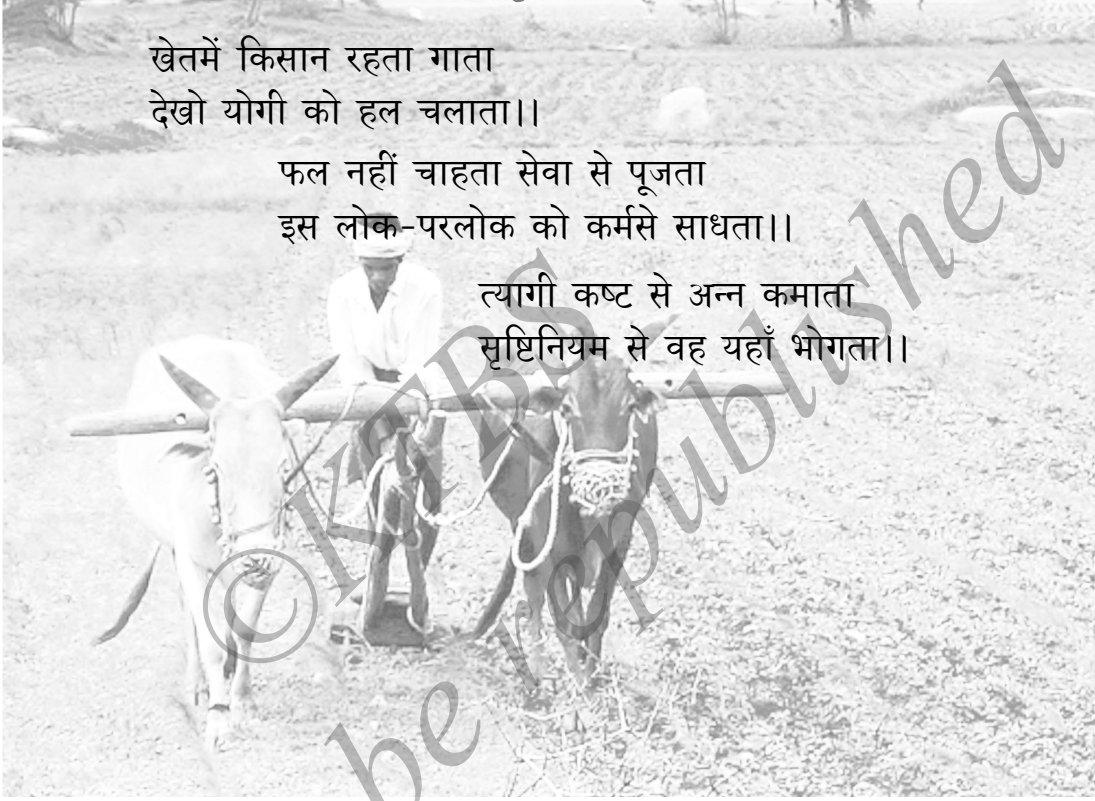 खेतमें किसान रहता गाता
देखो योगी को हल चलाता।।
फल नहीं चाहता सेवा से पूजता
इस लोक-परलोक को कर्मसे साधता।।
त्यागी कष्ट से अन्न कमाता
सृष्टिनियम से वह यहाँ भोगता।।
©KTBS
be republished